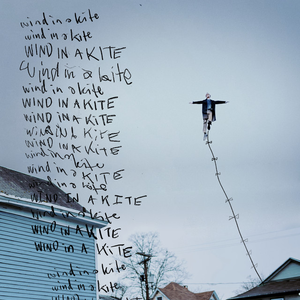 wind in a kite
wind in a kite
WIND IN A KITE
Wind in a kite
wind in a kite
WIND IN A KITE
WIND IN A KITE
WIND IN A KITE
WIND IN A KITE
wind in a kite
WIND IN A KITE
wind in a kite
WIND IN A KITE
wind in a kite
WIND IN A KITE
WIND IN A KITE
wind in a kite
wind in a kite
WIND IN A KITE